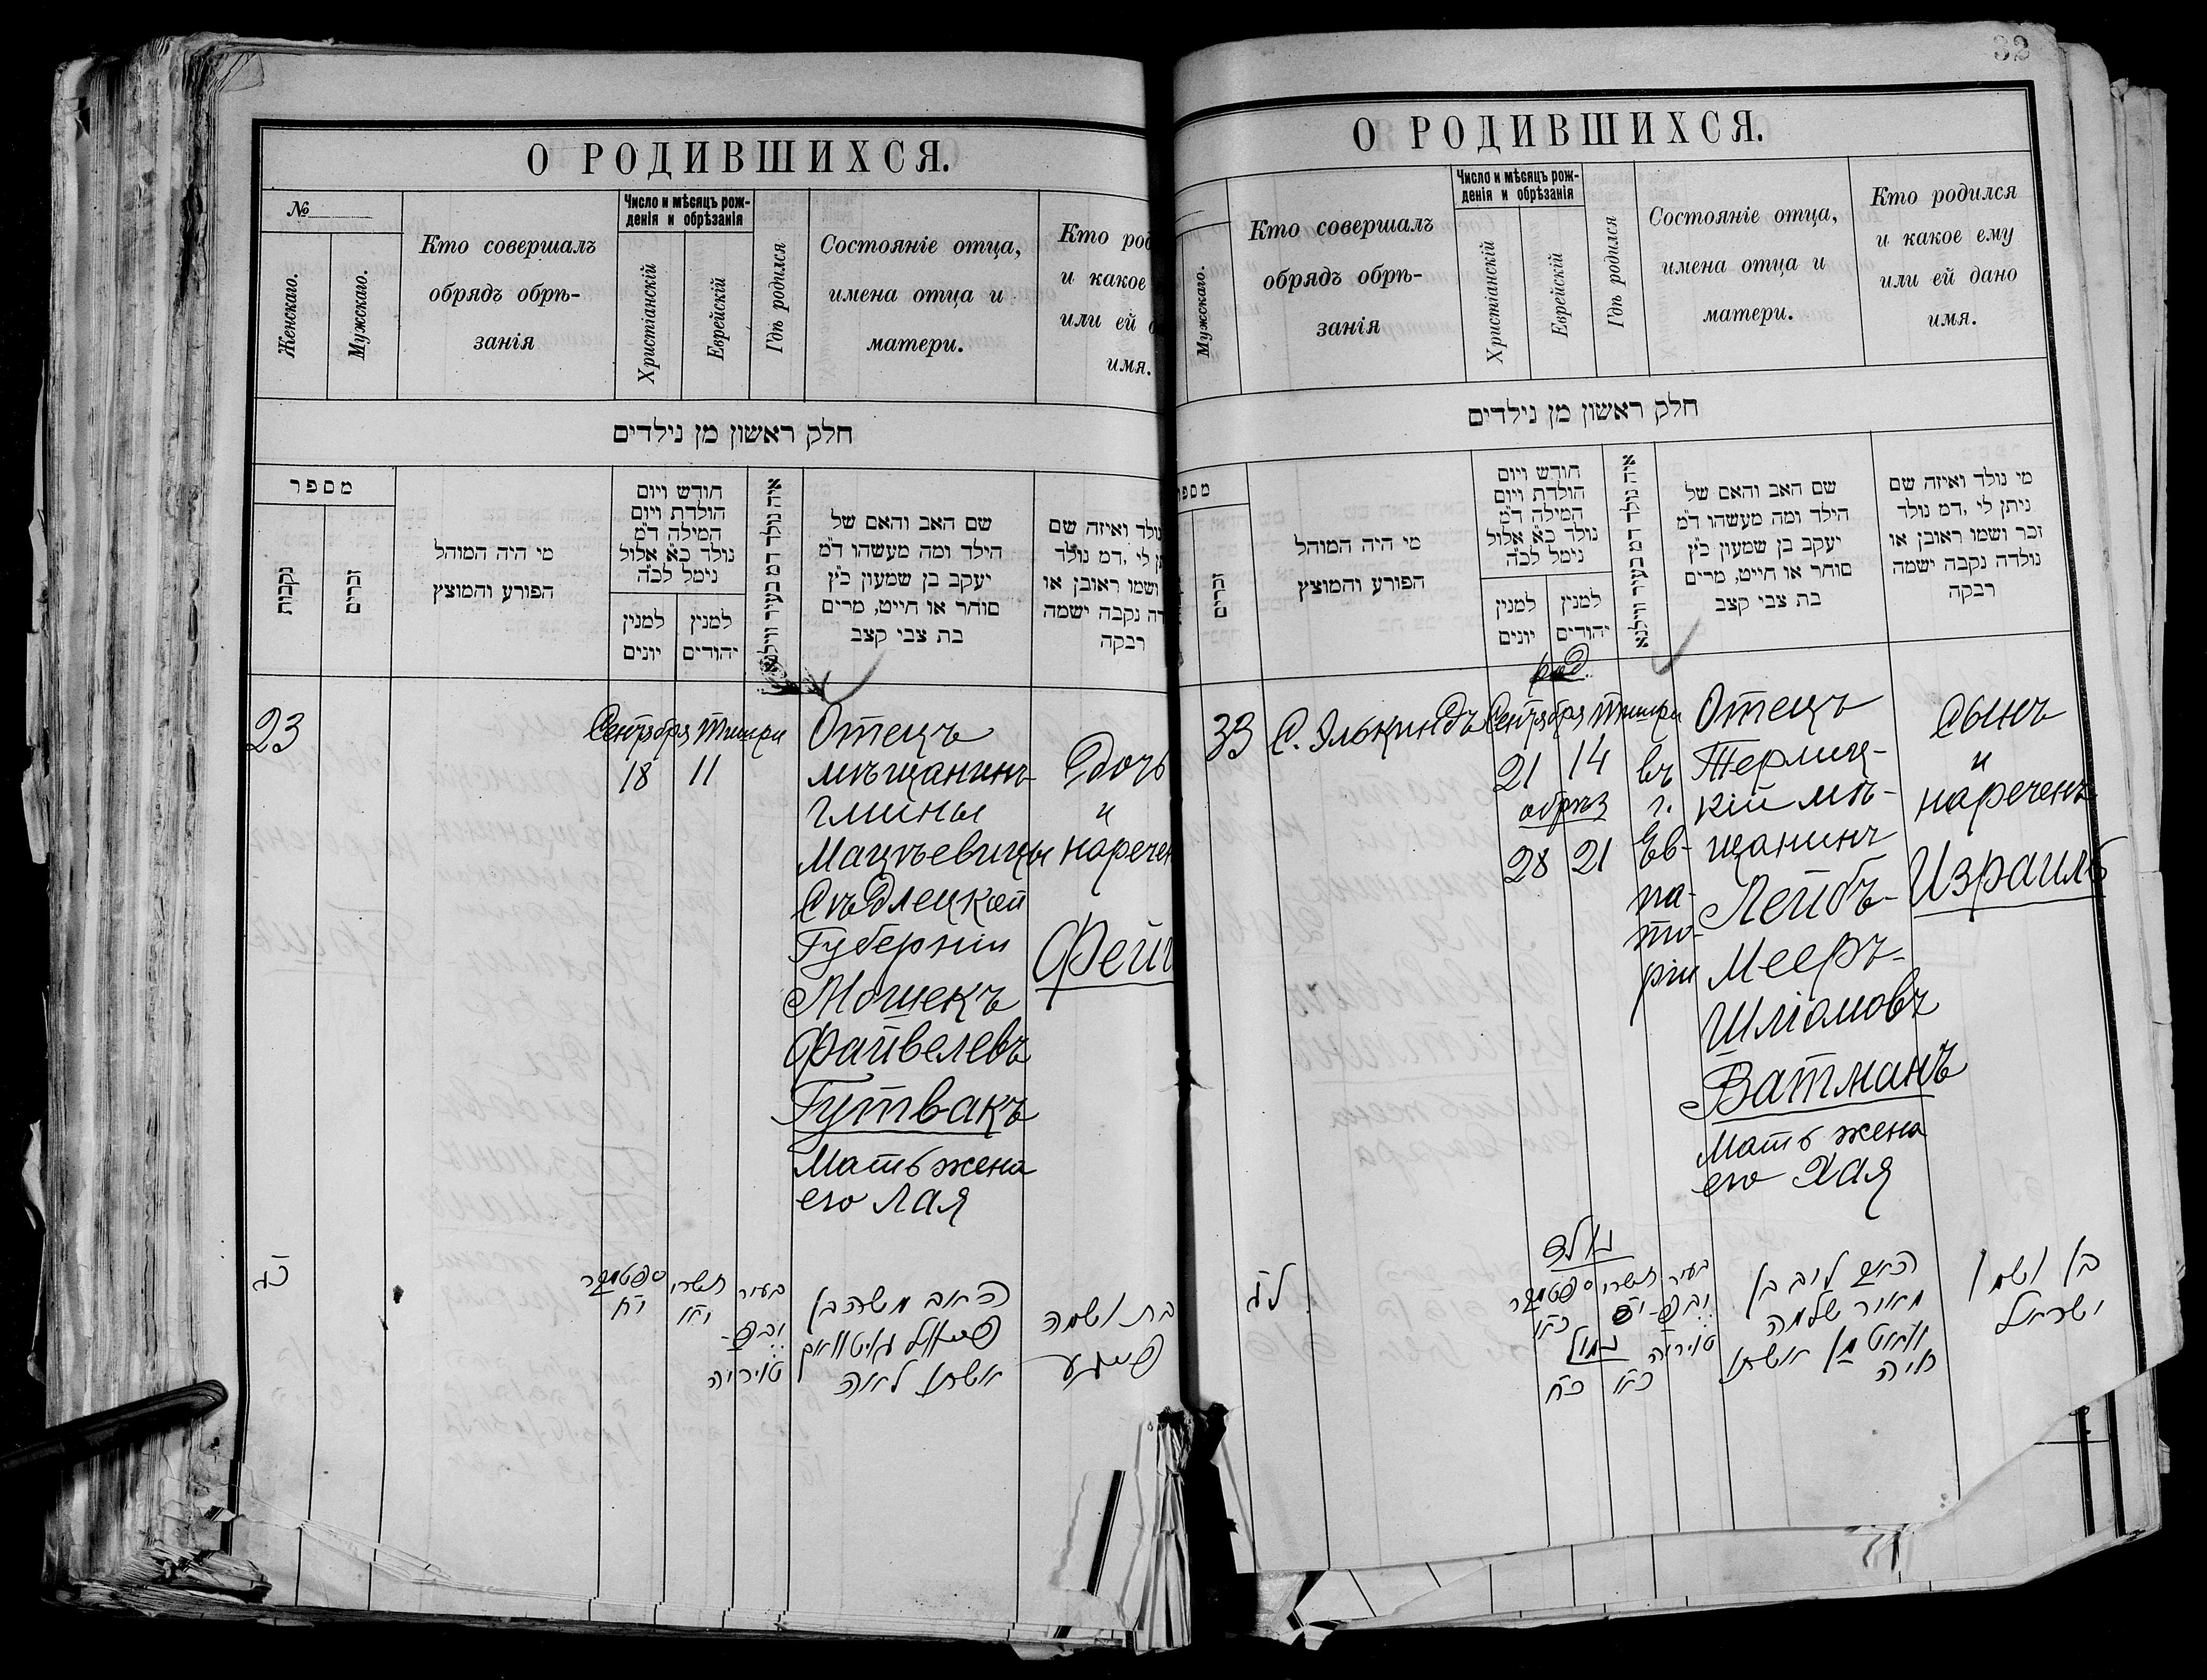 О РОДИВШИХСЯ.
№
Женскаго.
Мужскаго.
Кто совершалъ
обрядъ обрѣ-
занія
Число и мѣсяцъ рож-
денія и обрѣзанія
Христіанскій
Еврейскій
Гдѣ родился
Состояніе отца,
имена отца и
матери.
Кто род
и какое
или ей
имя.
חלק ראשון מן נילדים
מספר
נקבות
זכרים
מי היה המוהל
הפורע והמוצץ
חודש ויום
הולדת ויום
המילה ד״מ
נולד כ״א אלול
נימל לכ״ה
למנין
יונים
למנין
יהודים
איה נולד דמ בעיר ווילנא
שם האב והאם של
הילד ומה מעשהו ד״מ
יעקב בן שמעון כ״ץ
סוחר או חייט, מרים
בת צבי קצב
נולד ואיזה שם
לי ,דמ נולד
ושמו ראובן או
דה נקבה ישמה
רבקה
23
Сентября Тишри
18 11
Отецъ
мѣщанинъ
гмины
Мацѣевицы
Сѣдлецкой
Губерніи
Мошекъ
Файвелевъ
Гутвакъ
Мать жена
его Лая
Дочь
и
наречен
Фейг
כ״ג
ספטמבר
י״ח
תשרי
י״א
בעיר
יבפ-
טוריה
האב משה בן
פייוול גוטוואק
אשתו לאה
בת ושמה
פייגע
32
О РОДИВШИХСЯ.
Мужскаго.
Кто совершалъ
обрядъ обрѣ-
занія
Число и мѣсяцъ рож-
денія и обрѣзанія
Христіанскій
Еврейскій
Гдѣ родился
Состояніе отца,
имена отца и
матери.
Кто родился
и какое ему
или ей дано
имя.
חלק ראשון מן נילדים
מספ
זכרים
מי היה המוהל
הפורע והמוצץ
חודש ויום
הולדת ויום
המילה ד״מ
נולד כ״א אלול
נימל לכ״ה
למנין
יונים
למנין
יהודים
איה נולד דמ בעיר ווילנא
שם האב והאם של
הילד ומה מעשהו ד״מ
יעקב בן שמעון כ״ץ
סוחר או חייט, מרים
בת צבי קצב
מי נולד ואיזה שם
ניתן לי ,דמ נולד
זכר ושמו ראובן או
נולדה נקבה ישמה
רבקה
33
С. Элькиндъ
род
Сентября Тишри
21 14
обрѣз
28 21
въ
г.
Ев-
па-
то-
ріи
Отецъ
мѣ-
щанинъ
Лейбъ-
Мееръ-
Шліомовъ
Ватманъ
Мать жена
его Хая
Сынъ
и
нареченъ
Израиль
ל״ג
נולד
ספטמבר
כ״א
תשרי
נמול
כ״ח
כ״א
בעיר
יבפ-
טוריה
האב ליב בן
מאיר שלמה
וואטמן אשתו
חיה
בן ושמו
ישראל